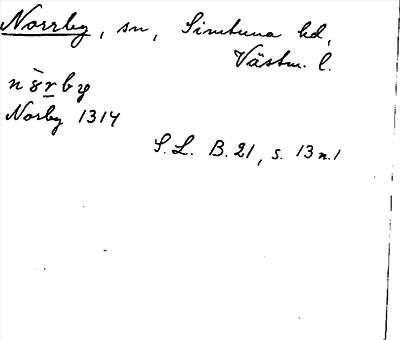 Norrby, sn, Simtuna hd,
Västm. l.
Norby 1314
S.L. B. 21, s. 13 n. 1